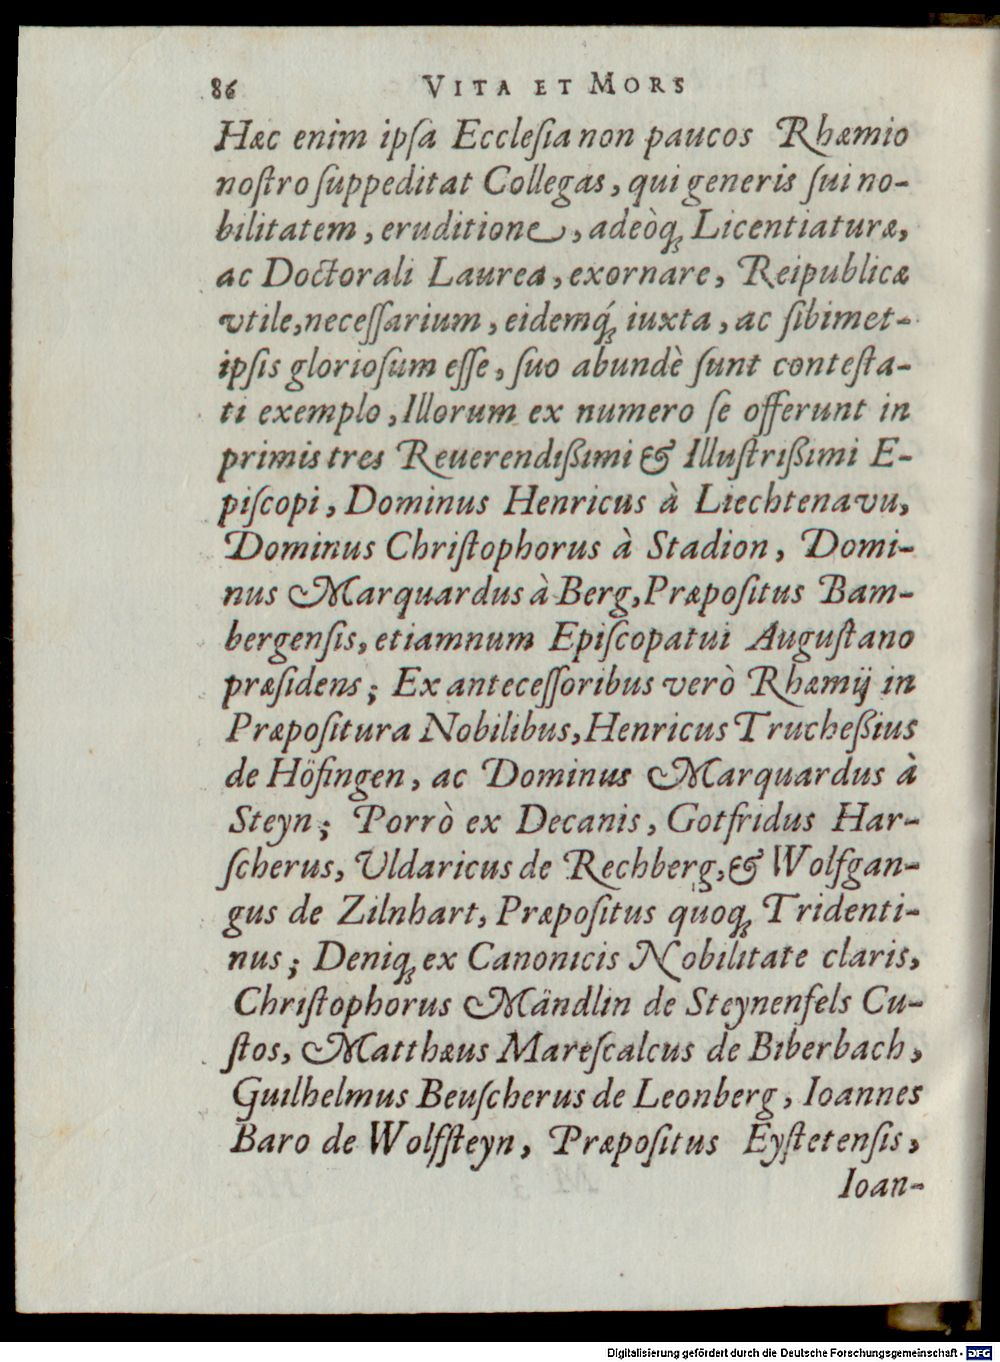 86 VITA ET MORS
Hæc enim ipſa Eccleſia non paucos Rhæmio
noſtro ſuppeditat Collegas, qui generis ſui no-
bilitatem, eruditione, adeòq́ꝫ Licentiaturæ,
ac Doctorali Laurea, exornare, Reipublicæ
vtile, neceſſarium, eidemq́ꝫ iuxta, ac ſibimet-
ipſis glorioſum eſſe, ſuo abundè ſunt conteſta-
ti exemplo, Illorum ex numero ſe offerunt in
primis tres Reuerendißimi & Illuſtrißimi E-
piſcopi, Dominus Henricus à Liechtenavu,
Dominus Chriſtophorus à Stadion, Domi-
nus Marquardus à Berg, Præpoſitus Bam-
bergenſis, etiamnum Epiſcopatui Auguſtano
præſidens; Ex anteceſſoribus verò Rhæmij in
Præpoſitura Nobilibus, Henricus Trucheßius
de Höfingen, ac Dominus Marquardus à
Steyn; Porrò ex Decanis, Gotfridus Har-
ſcherus, Uldaricus de Rechberg, & Wolfgan-
gus de Zilnhart, Præpoſitus quoqꝫ Tridenti-
nus; Deniqꝫ ex Canonicis Nobilitate claris,
Chriſtophorus Mändlin de Steynenfels Cu-
ſtos, Matthæus Mareſcalcus de Biberbach,
Guilhelmus Beuſcherus de Leonberg, Ioannes
Baro de Wolfſteyn, Præpoſitus Eyſtetenſis,
Ioan-
Digitalisierung gefördert durch die Deutsche Forschungsgemeinschaft - DFG